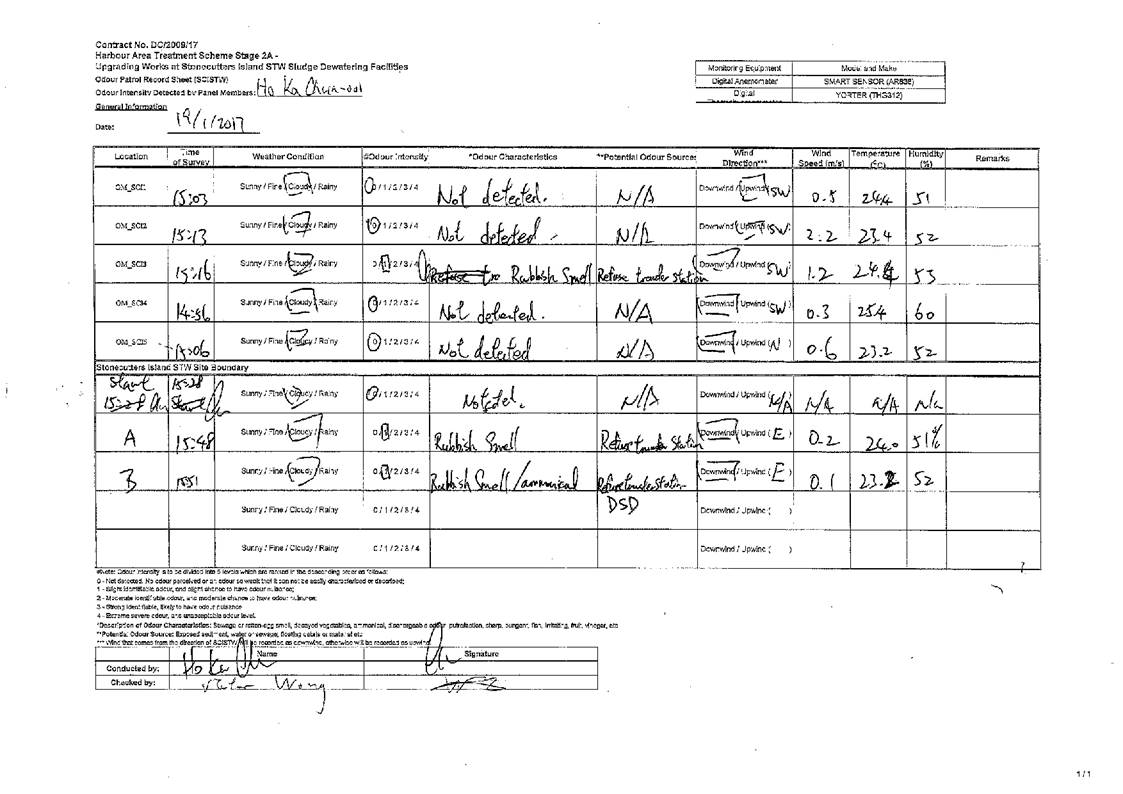 Contract No. DC/2009/17
Harbour Area Treatment Scheme Stage 2A -
Upgrading Works at Stonecutters Island STW Sludge Dewatering Facilities
Odour Patrol Record Sheet (SCISTW)
Odour Intensity Detected by Panel Members: Ho Ka
General Information
Date: 19/1/2017
Monitoring Equipment Model and Make
Digital Anemometer SMART SENSOR (AR836)
Digital YORTER (THG312)
Location Time of Survey Weather Condition #Odour Intensity *Odour Characteristics **Potential Odour Sources Wind Direction*** Wind Speed (m/s) Temperature (°C) Humidity (%) Remarks
15:03 Sunny / Fine / Cloudy / Rainy 0 / 1 / 2 / 3 / 4 Not detected. N/A Downwind / Upwind (SW) 0.5 24.4 51
15:13 Sunny / Fine / Cloudy / Rainy 0 / 1 / 2 / 3 / 4 Not detected N/A Downwind / Upwind (SW) 2.2 23.4 52
15:16 Sunny / Fine / Cloudy / Rainy 0 / 1 / 2 / 3 / 4 Rubbish Smell Refuse station Downwind / Upwind (SW) 1.2 53
14:56 Sunny / Fine / Cloudy / Rainy 0 / 1 / 2 / 3 / 4 Not detected. N/A Downwind / Upwind (SW) 0.3 25.4 60
15:06 Sunny / Fine / Cloudy / Rainy 0 / 1 / 2 / 3 / 4 Not detected N/A Downwind / Upwind (N) 0.6 23.2 52
Stonecutters Island STW Site Boundary
Start 15:28 Sunny / Fine / Cloudy / Rainy 0 / 1 / 2 / 3 / 4 N/A Downwind / Upwind (N/A) N/A N/A N/A
A 15:48 Sunny / Fine / Cloudy / Rainy 0 / 1 / 2 / 3 / 4 Rubbish Smell Refuse Station Downwind / Upwind (E) 0.2 24.0 51%
B 1551 Sunny / Fine / Cloudy / Rainy 0 / 1 / 2 / 3 / 4 Rubbish Smell /ammonical Refuse Station Downwind / Upwind (E) 0.1 52
DSD
Sunny / Fine / Cloudy / Rainy 0 / 1 / 2 / 3 / 4 Downwind / Upwind ( )
Sunny / Fine / Cloudy / Rainy 0 / 1 / 2 / 3 / 4 Downwind / Upwind ( )
#Note: Odour Intensity is to be divided into 5 levels which are ranked in the descending order as follows:
0 - Not detected. No odour perceived or an odour so weak that it can not be easily characterised or described;
1 - Slight identifiable odour, and slight chance to have odour nuisance;
2 - Moderate identifiable odour, and moderate chance to have odour nuisance;
3 - Strong identifiable, likely to have odour nuisance
4 - Extreme severe odour, and unacceptable odour level.
*Description of Odour Characteristics: Sewage or rotten-egg smell, decayed vegetables, ammonical, dischargeable odour putrefaction, sharp, pungent, fish, irritating, fruit, vinegar, etc
**Potential Odour Source: Exposed sediment, water or sewage, floating debris or material etc
*** Wind that comes from the direction of SCISTW will be recorded as downwind, otherwise will be recorded as upwind
Name Signature
Conducted by: Ho Ka
Checked by: Wong
1 / 1